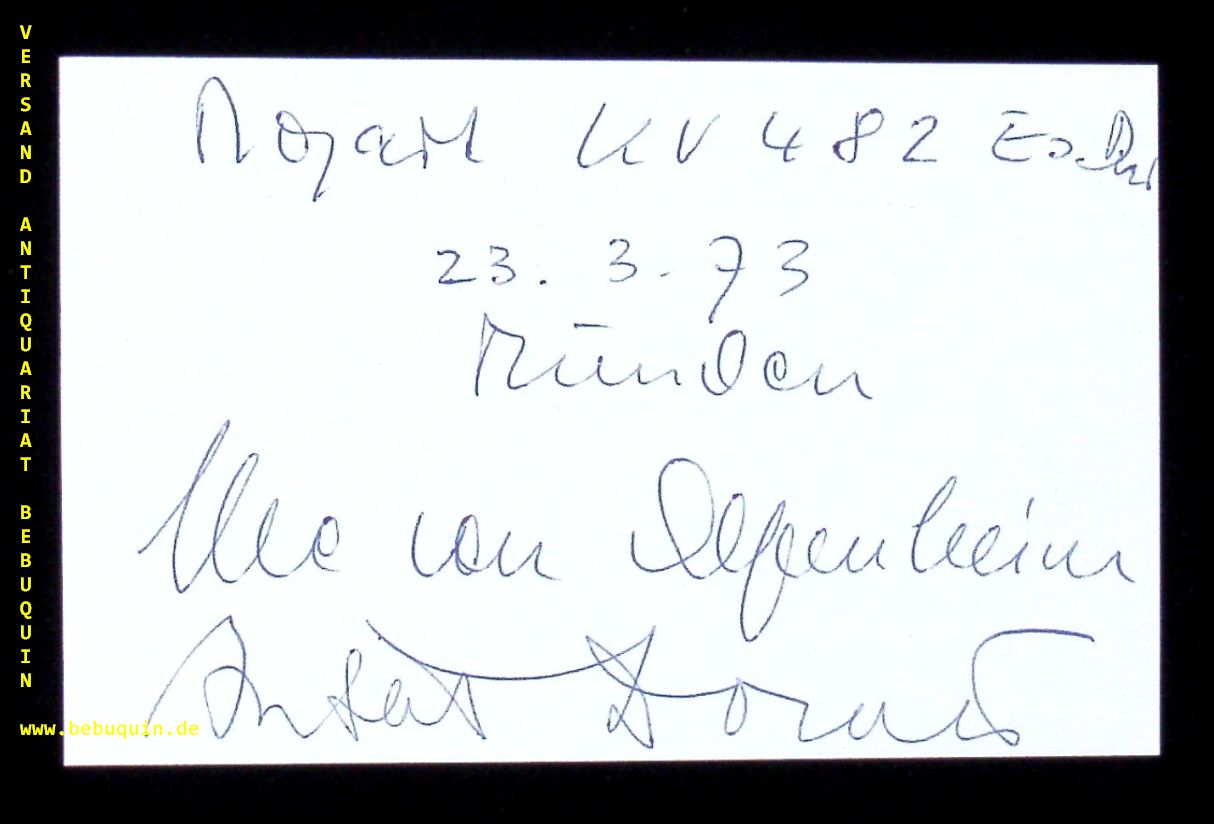 VERSAND ANTIQUARIAT BEBUQUIN
Mozart KV 482 Es-Dur
23. 3. 73
Münden
von
Antal Dorati
www.bebuquin.de